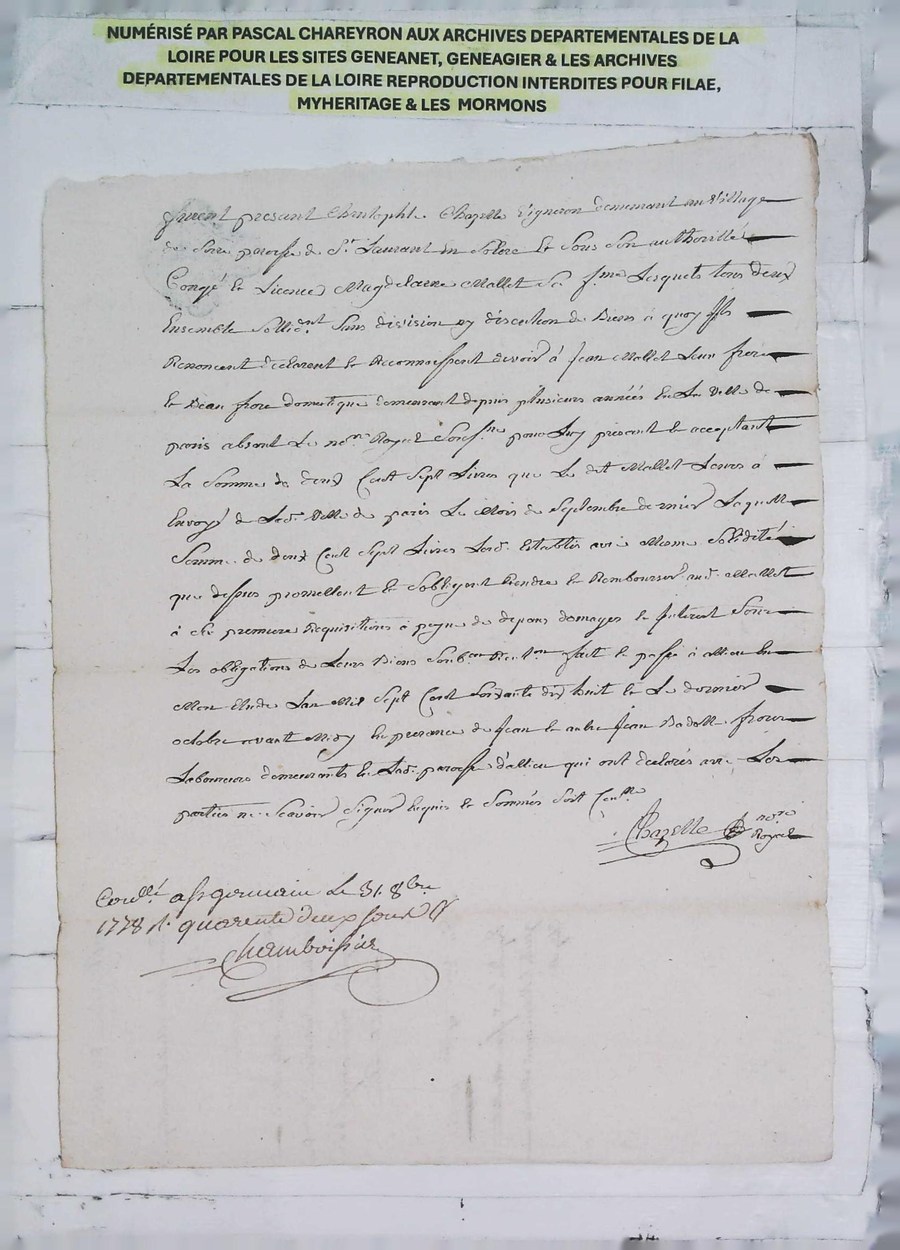 NUMÉRISÉ PAR PASCAL CHAREYRON AUX ARCHIVES DEPARTEMENTALES DE LA
LOIRE POUR LES SITES GENEANET, GENEAGIER & LES ARCHIVES
DEPARTEMENTALES DE LA LOIRE REPRODUCTION INTERDITES POUR FILAE,
MYHERITAGE & LES MORMONS
furent present Christophle Chapelle vigneron demeurant au village
de paroisse de St Laurant en Solore et sous son authorillé
Congé et Licence Magdelaine Mallet sa fme Lesquels tous deux
Ensemble sollidnt sans division ny discution de Biens à quoy Ils
Renoncent declarent et Reconnoissent devoir à Jean Mallet Leur frere
et Beau frere domestique demeurant depuis plusieurs années en La Ville de
paris absant Le nore Royal pour Luy present et acceptant
La somme de deux Cent Sept Livres que Le dit Mallet Leurs à
Envoyé de Lade Ville de paris Le Mois de Septembre dernier Laquelle
Somme de deux Cent Sept Livres Lesd. Establis avec Meme sollidité
que dessus promettent et sobligent Rendre et Rembourser aud. Mallet
à ches premiere Requisitions à peyne de depans domages et Interest sous
Les obligations de Leurs Biens fait et passé à allieu En
Mon Etude Lan Mil Sept Cent soixante dix huit et Le dernier
octobre avant Midy En presance de Jean et autre Jean frerer
Laboureurs demeurants En Lad. paroisse d'allieu qui ont declarés avec Les
parties ne Scavoir Signer Requis et Sommés soit Conllé
Chapelle nore
Royal
Conllé a St germain Le 31 8bre
1778 r. quarente deux sous
Chamboissier